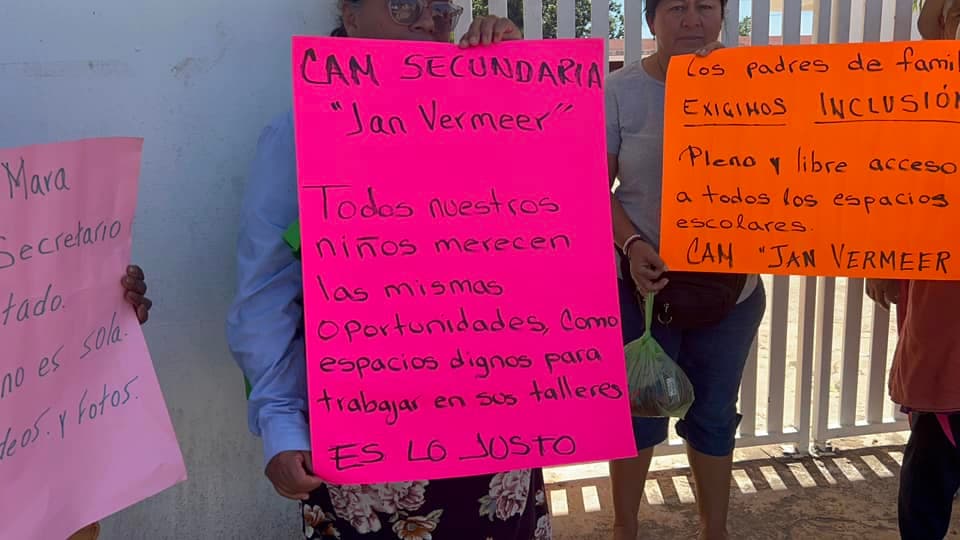 Mara
Secretario
tado.
no es sola.
deos. y Fotos.
CAM SECUNDARIA
"Jan Vermeer"
Todos nuestros
niños merecen
las mismas
oportunidades, como
espacios dignos para
trabajar en sus talleres
ES LO JUSTO
Los padres de famil
EXIGIMOS INCLUSIÓN
Pleno y libre acceso
a todos los espacios
escolares.
CAM "JAN VERMEER